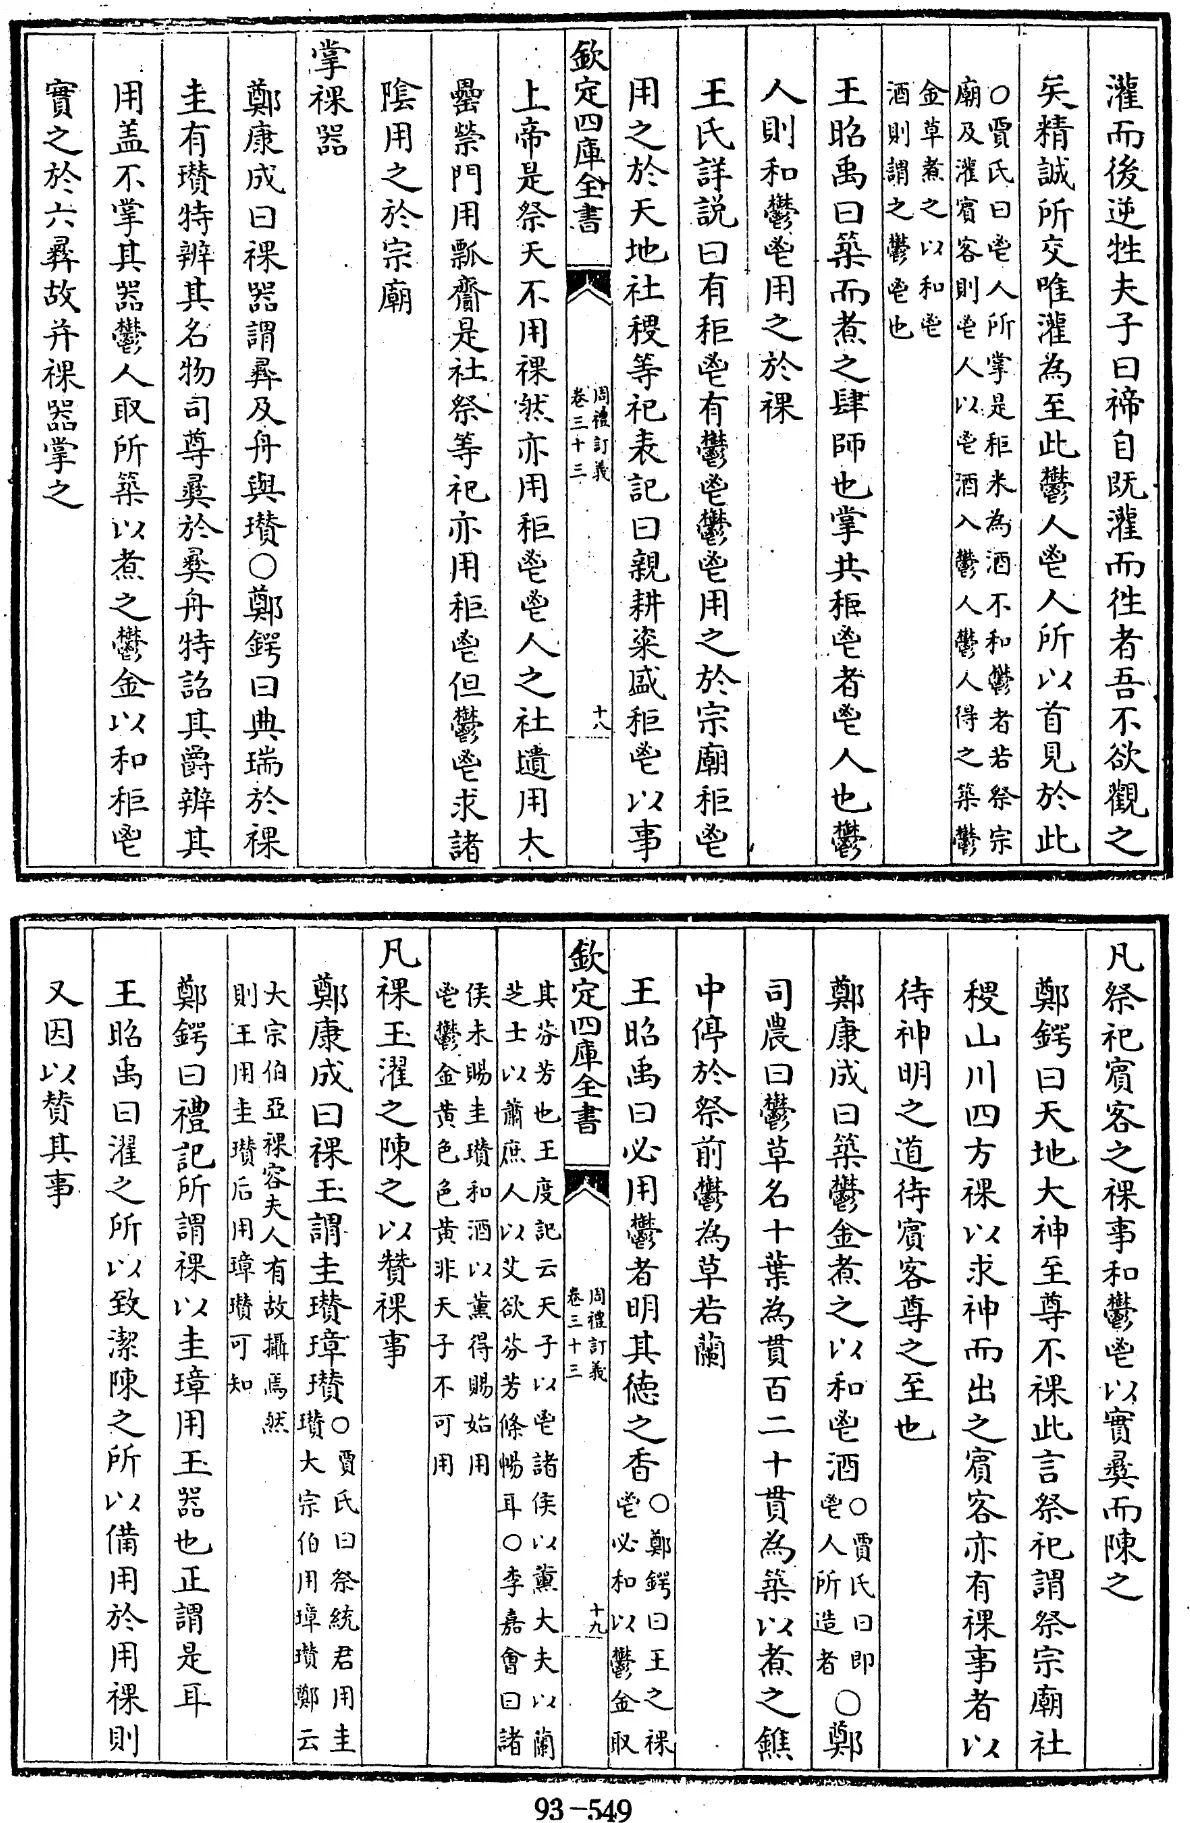 灌而後逆牲夫子曰禘自既灌而徃者吾不欲觀之
矣精誠所交唯灌為至此鬱人鬯人所以首見於此
○賈氏曰鬯人所掌是秬米為酒不和鬱者若祭宗
廟及灌賓客則鬯人以鬯酒入鬱人鬱人得之築鬱
金草煮之以和鬯
酒則謂之鬱鬯也
王昭禹曰築而煮之肆師也掌共秬鬯者鬯人也鬱
人則和鬱鬯用之於祼
王氏詳説曰有秬鬯有鬱鬯鬱鬯用之於宗廟秬鬯
用之於天地社稷等祀表記曰親耕粢盛秬鬯以事
欽定四庫全書
周禮訂義
卷三十三
十八
上帝是祭天不用祼然亦用秬鬯鬯人之社壝用大
罍禜門用瓢齎是社祭等祀亦用秬鬯但鬱鬯求諸
陰用之於宗廟
掌祼器
鄭康成曰祼器謂彞及舟與瓚○鄭鍔曰典瑞於祼
圭有瓚特辨其名物司尊彞於彞舟特詔其爵辨其
用盖不掌其器鬱人取所築以煮之鬱金以和秬鬯
實之於六彞故并祼器掌之
凡祭祀賓客之祼事和鬱鬯以實彞而陳之
鄭鍔曰天地大神至尊不祼此言祭祀謂祭宗廟社
稷山川四方祼以求神而出之賓客亦有祼事者以
待神明之道待賓客尊之至也
鄭康成曰築鬱金煮之以和鬯酒○賈氏曰即
鬯人所造者○鄭
司農曰鬱草名十葉為貫百二十貫為築以煮之鐎
中停於祭前鬱為草若蘭
王昭禹曰必用鬱者明其德之香○鄭鍔曰王之祼
鬯必和以鬱金取
欽定四庫全書
周禮訂義
卷三十三
十九
其芬芳也王度記云天子以鬯諸侯以薰大夫以蘭
芝士以蕭庶人以艾欲芬芳條暢耳○李嘉會曰諸
侯未賜圭瓚和酒以薰得賜始用
鬯鬱金黄色色黄非天子不可用
凡祼玉濯之陳之以贊祼事
鄭康成曰祼玉謂圭瓚璋瓚○賈氏曰祭統君用圭
瓚大宗伯用璋瓚鄭云
大宗伯亞祼容夫人有故攝焉然
則王用圭瓚后用璋瓚可知
鄭鍔曰禮記所謂祼以圭璋用玉器也正謂是耳
王昭禹曰濯之所以致潔陳之所以備用於用祼則
又因以贊其事
93-549